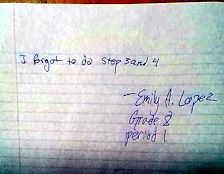 I forgot to do step 3 and 4
- Emily A. Lopez
Grade 8
period 1